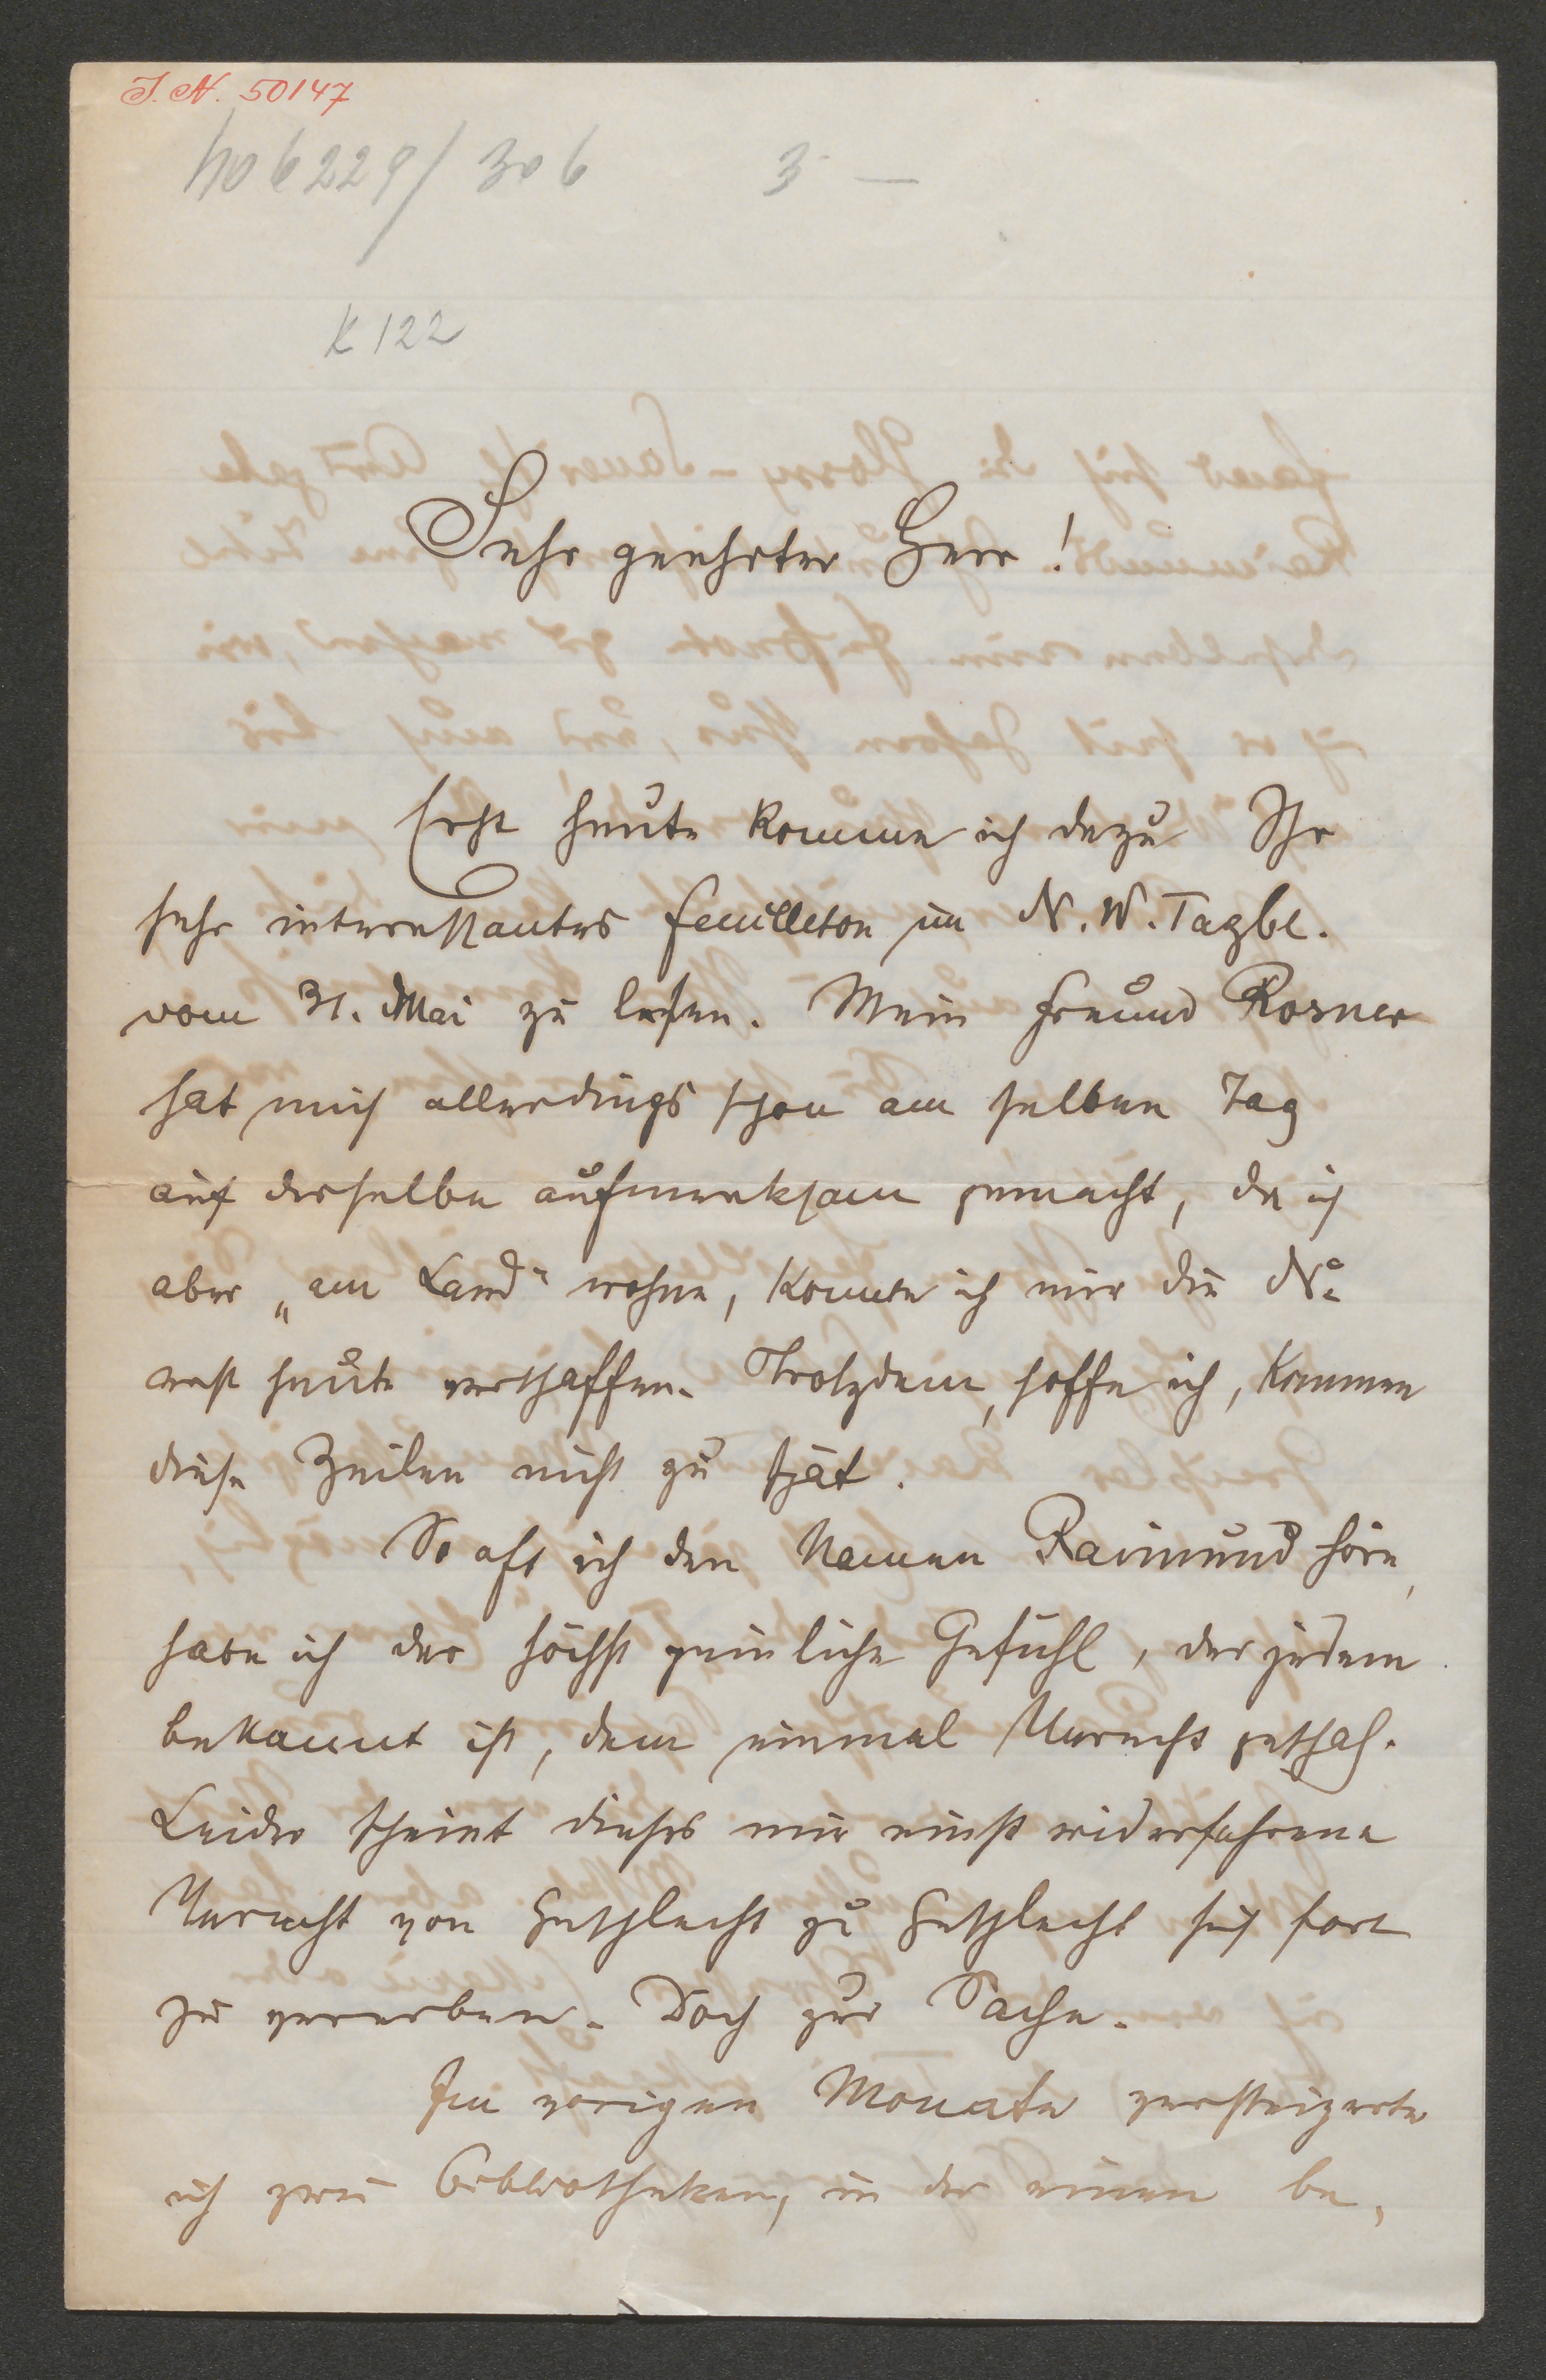 I. N. 50147
No 6229/306 3 —
K 122
Sehr geehrter Herr!
Erst heute komme ich dazu Ihr
sehr interessantes Feuilleton im N. W. Tagbl.
vom 31. Mai zu lesen. Mein Freund Rosner
hat mich allerdings schon am selben Tag
auf dasselbe aufmerksam gemacht, da ich
aber „am Land" wohne, konnte ich mir die No
erst heute verschaffen. Trotzdem, hoffe ich, kommen
diese Zeilen nicht zu spät.
So oft ich den Namen Raimund höre,
habe ich das höchst peinliche Gefühl, das jedem
bekannt ist, dem einmal Unrecht geschah.
Leider scheint dieses mir einst widerfahrene
Unrecht von Geschlecht zu Geschlecht sich fort
zu vererben. Doch zur Sache.
Im vorigen Monate versteigerte
ich zwei Bibliotheken, in der einen be,